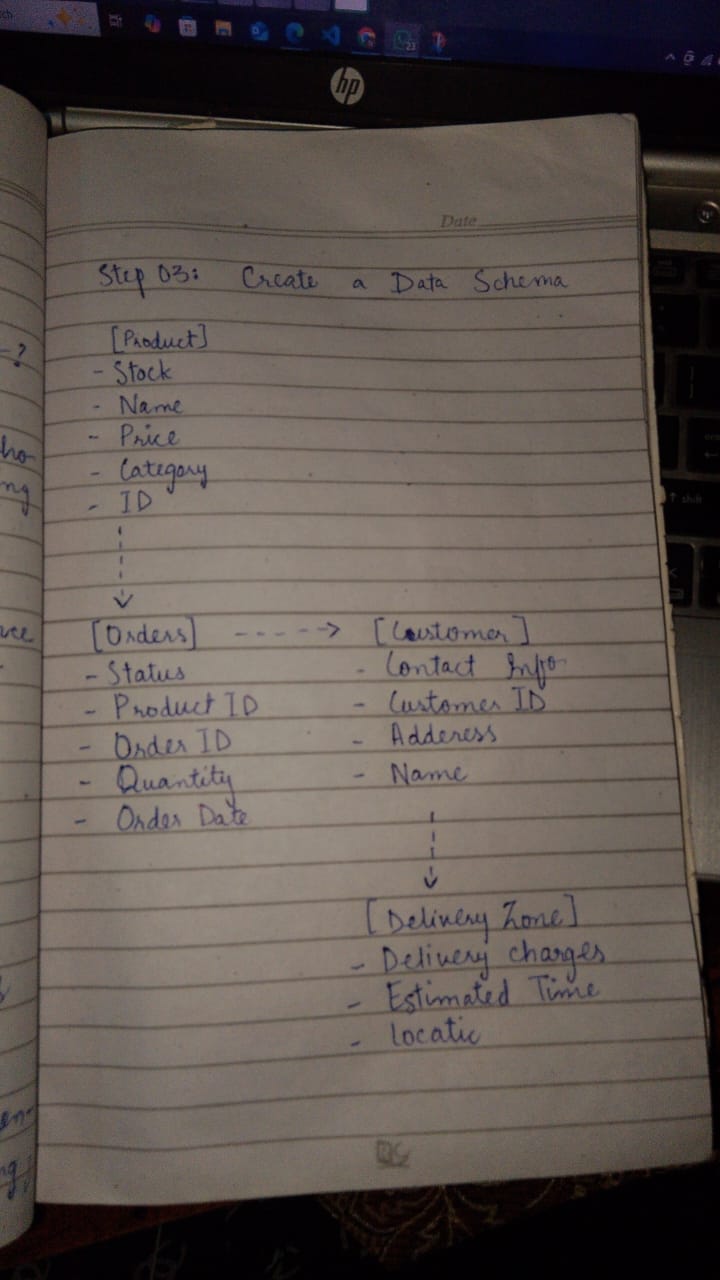 hp
Date
Step 03: Create a Data Schema
[Product]
- Stock
- Name
- Price
- Category
- ID
[Orders] ----> [Customer]
- Status
- Product ID
- Order ID
- Quantity
- Order Date
- Contact Info
- Customer ID
- Adderess
- Name
[Delivery Zone]
- Delivery charges
- Estimated Time
- Locatic
↑ shift
23